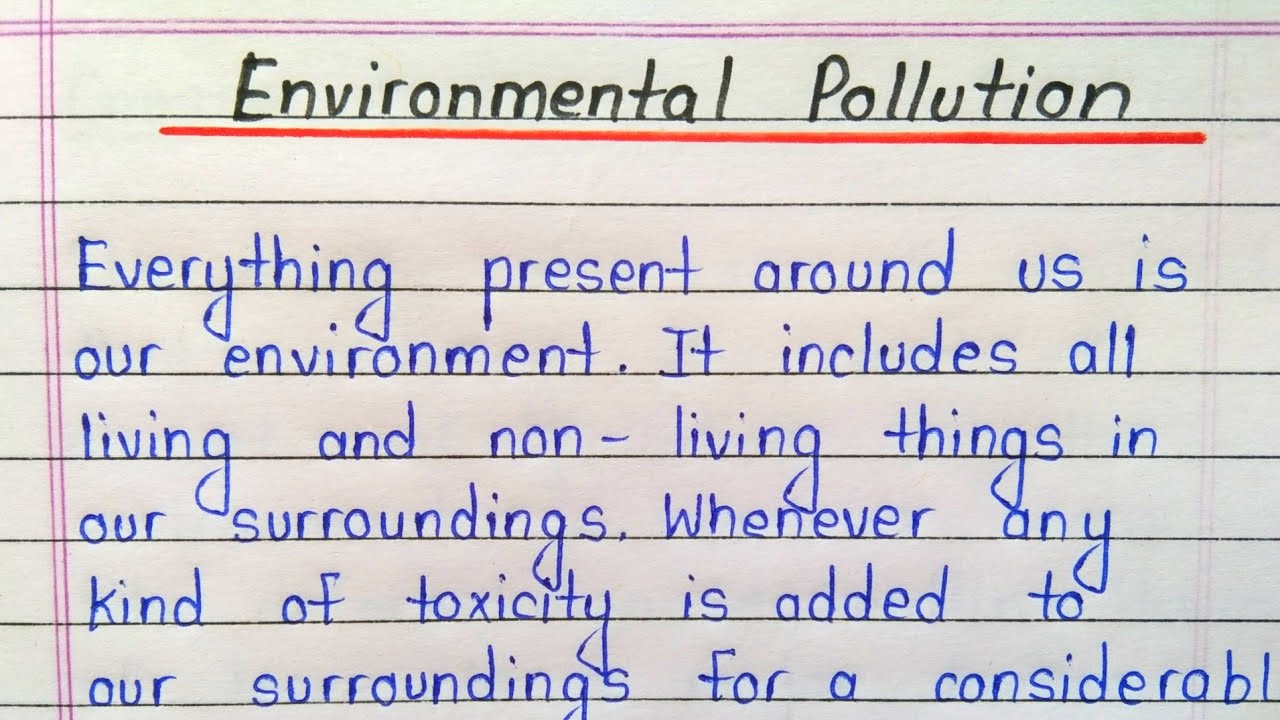 Environmental Pollution
Everything present around us is
our environment. It includes all
living and non-living things in
our surroundings. Whenever any
kind of toxicity is added to
our surroundings for a considerabl